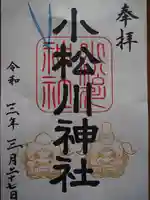 奉拝
小松川神社
令和三年三月二十七日